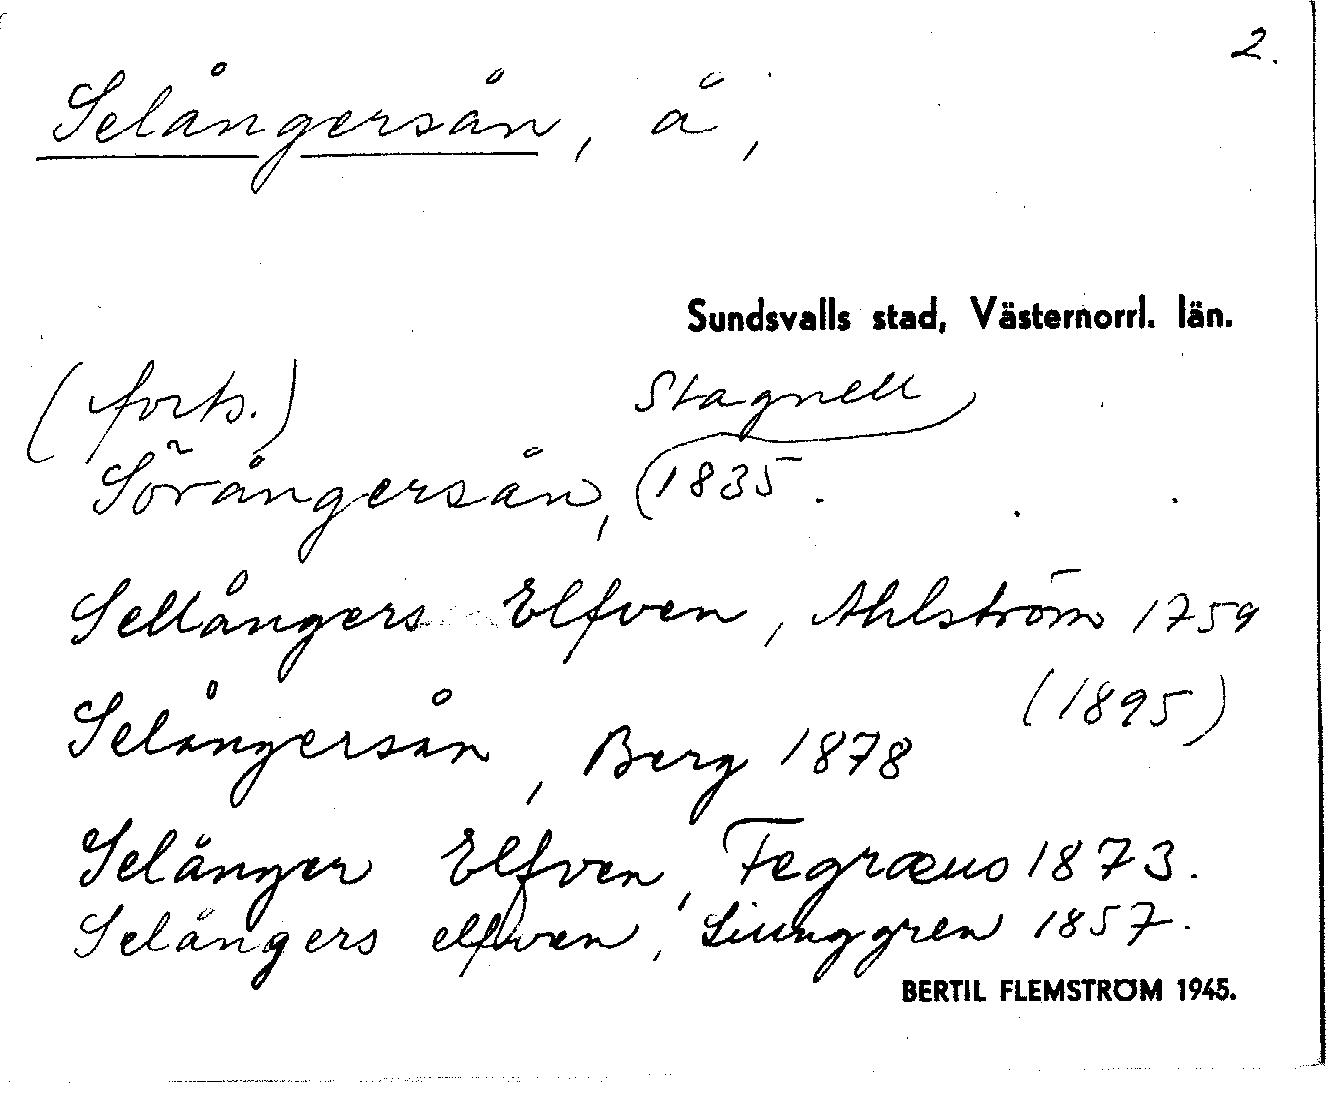 2.
Selångersån, å,
Sundsvalls stad, Västernorrl. län.
(forts.) Stagnell
Sörångersån, 1835.
Sellångers Elfven, Ahlström 1759
(1895)
Selångersån, Berg 1878
Selånger Elfven, Fegræus 1873.
Selångers elfven, Liunggren 1857.
BERTIL FLEMSTRÖM 1945.